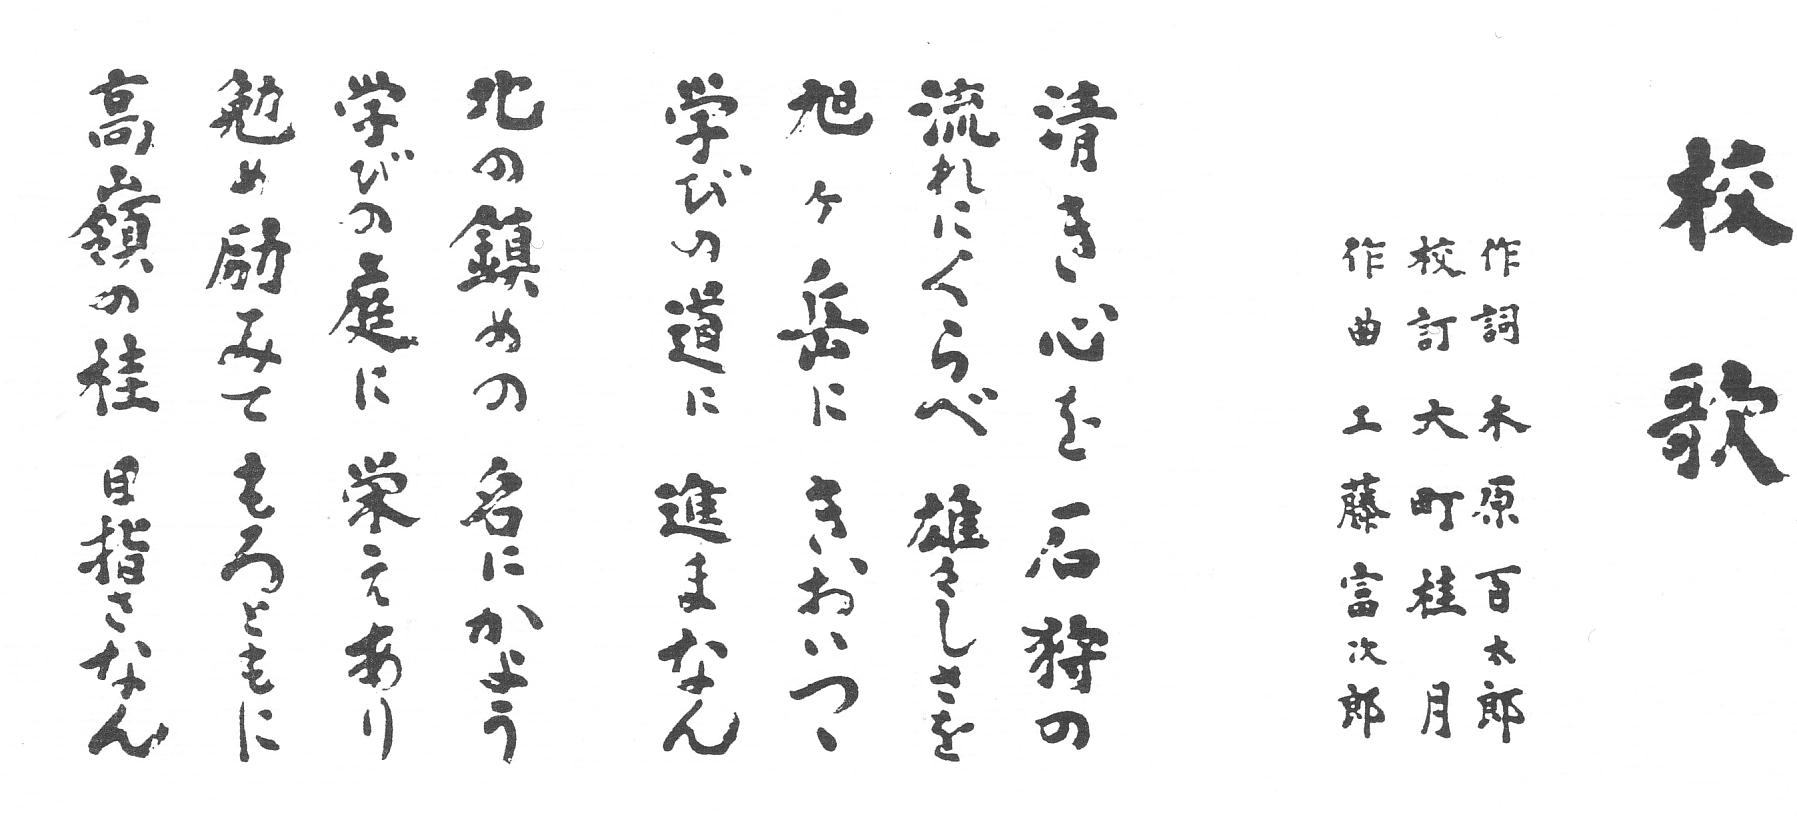 校歌
作詞 木原百太郎
校訂 大町桂月
作曲 工藤富次郎
清き心を 石狩の
流れにくらべ 雄々しさを
旭ヶ岳に きおいつゝ
学びの道に 進まなん
北の鎮めの 名にかよう
学びの庭に 栄えあり
勉め励みて もろともに
高嶺の桂 目指さなん